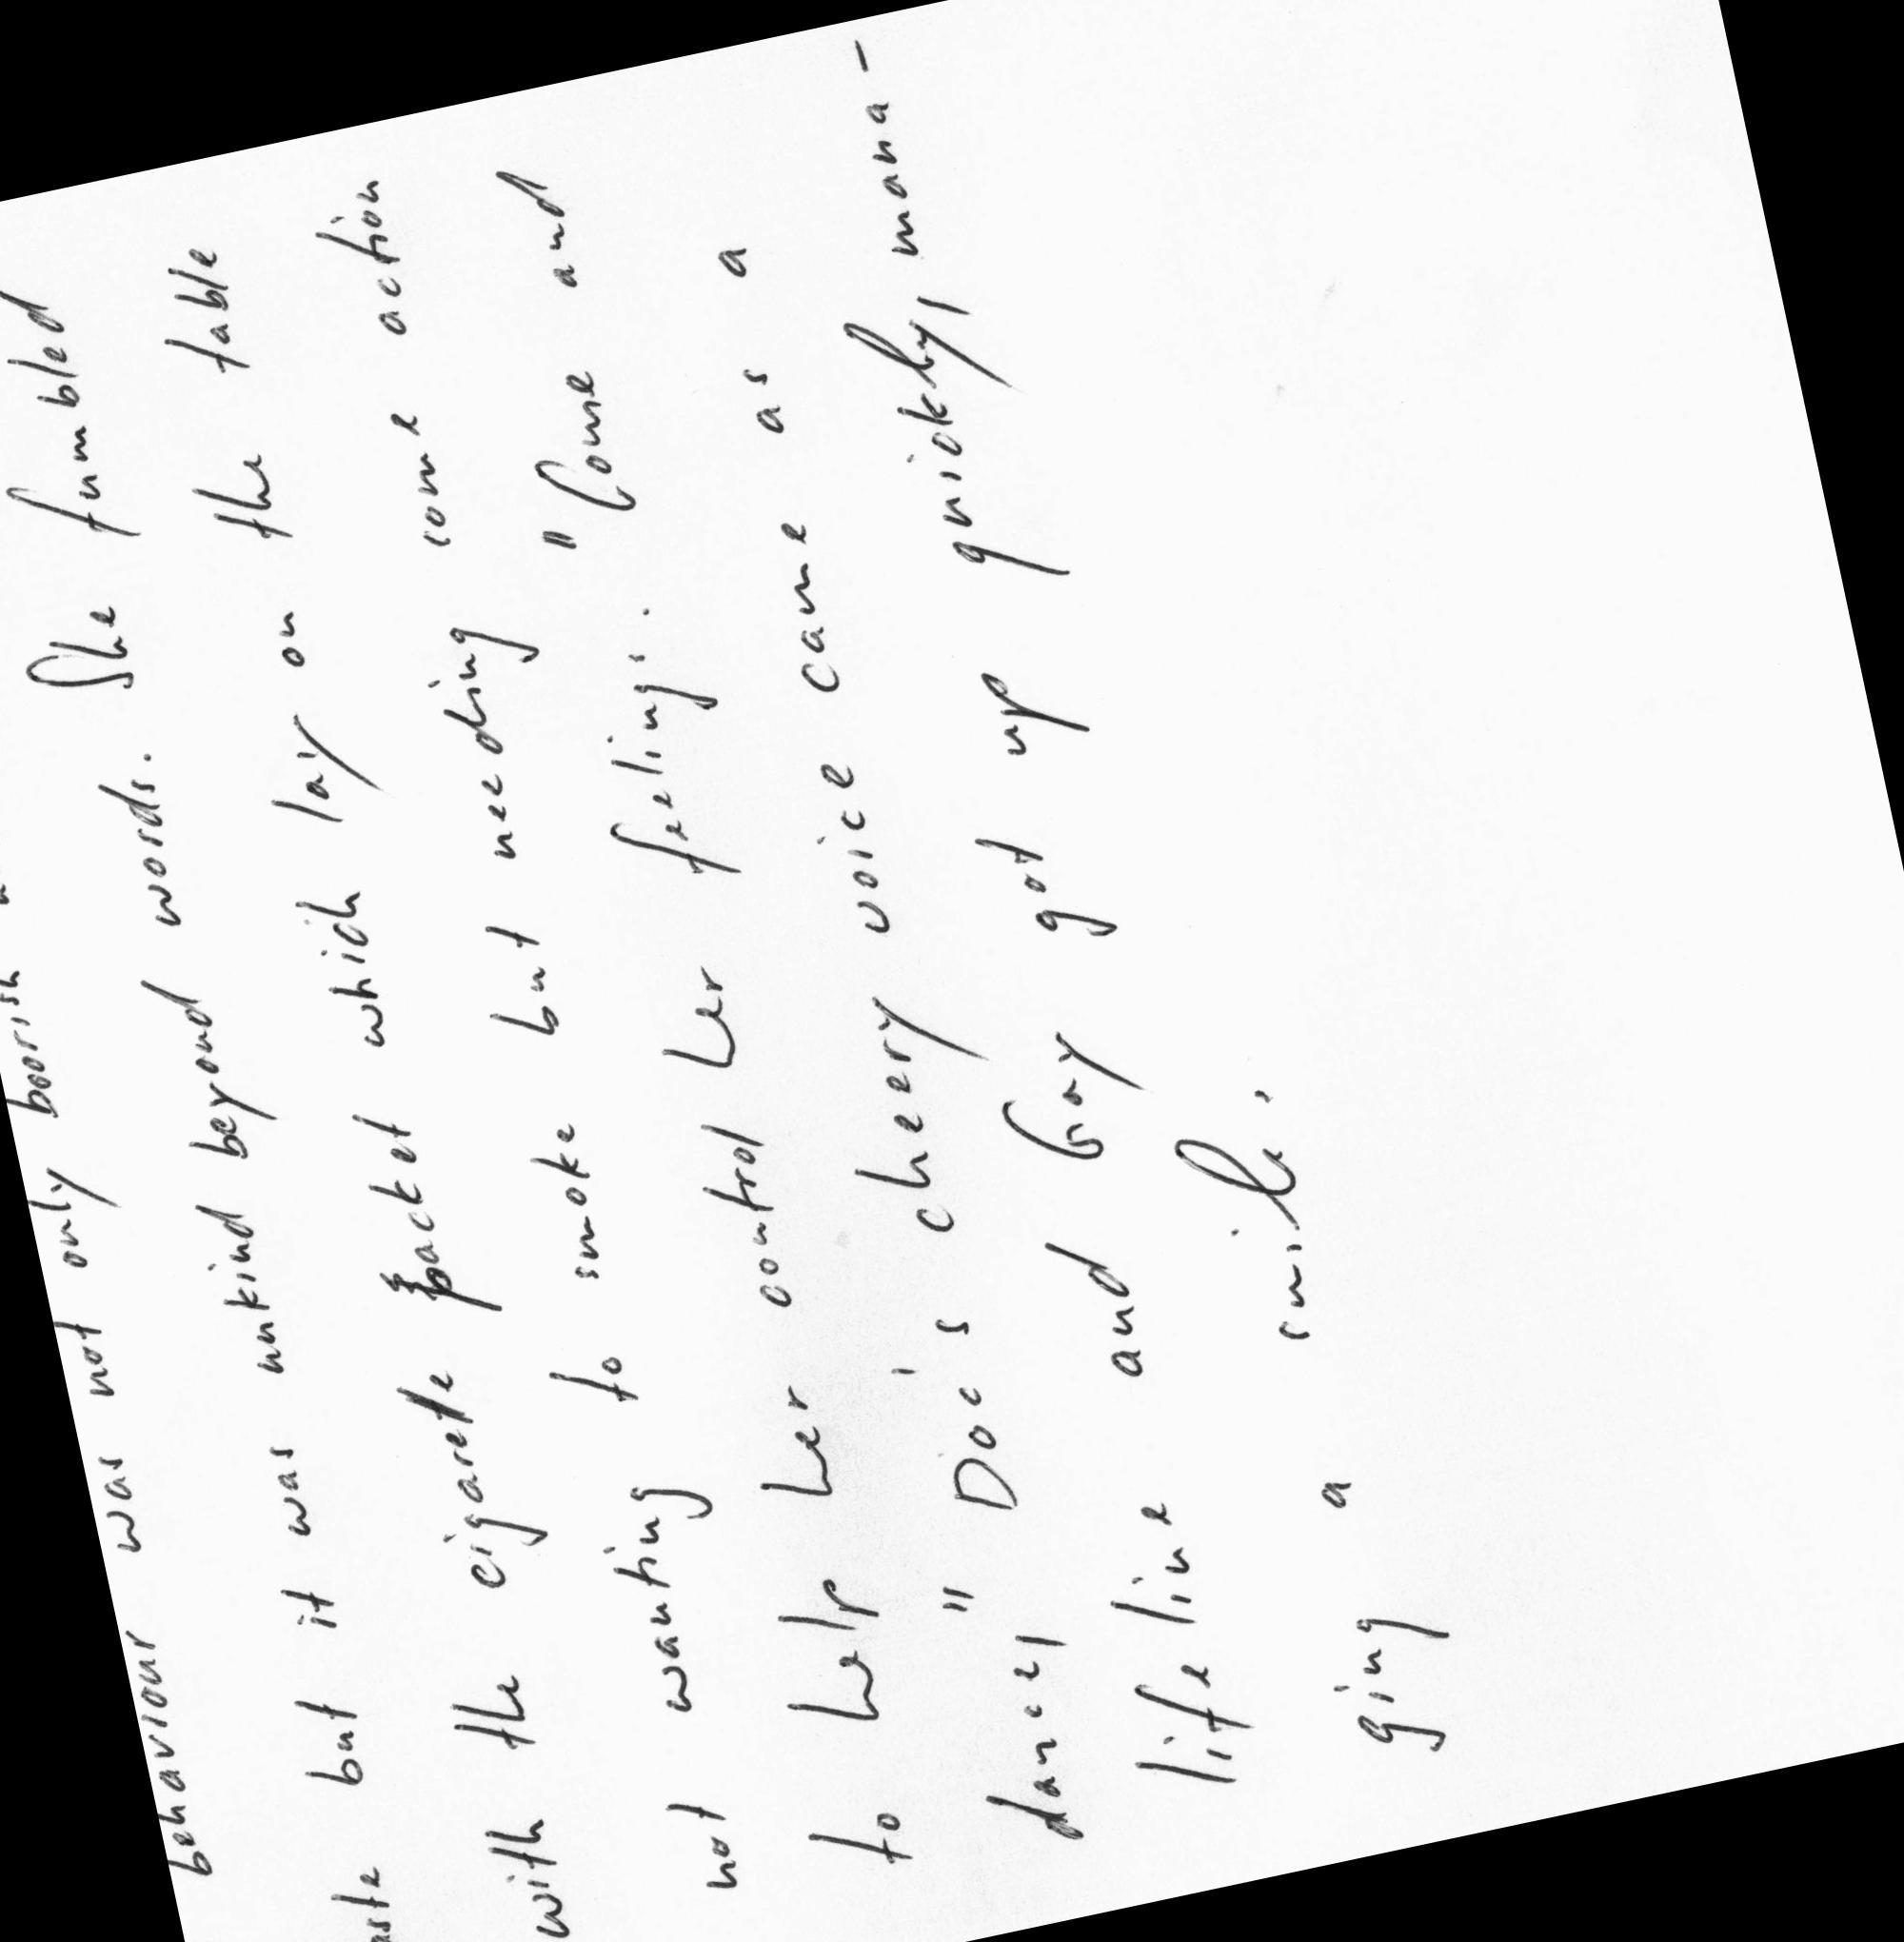 behaviour was not only boorish
but it was unkind beyond words. She fumbled
with the cigarette packet which lay on the table
not wanting to smoke but needing some action
to help her control her feelings. "Come and
dance," Doc's cheery voice came as a
life line and Gay got up quickly, mana-
ging a smile.